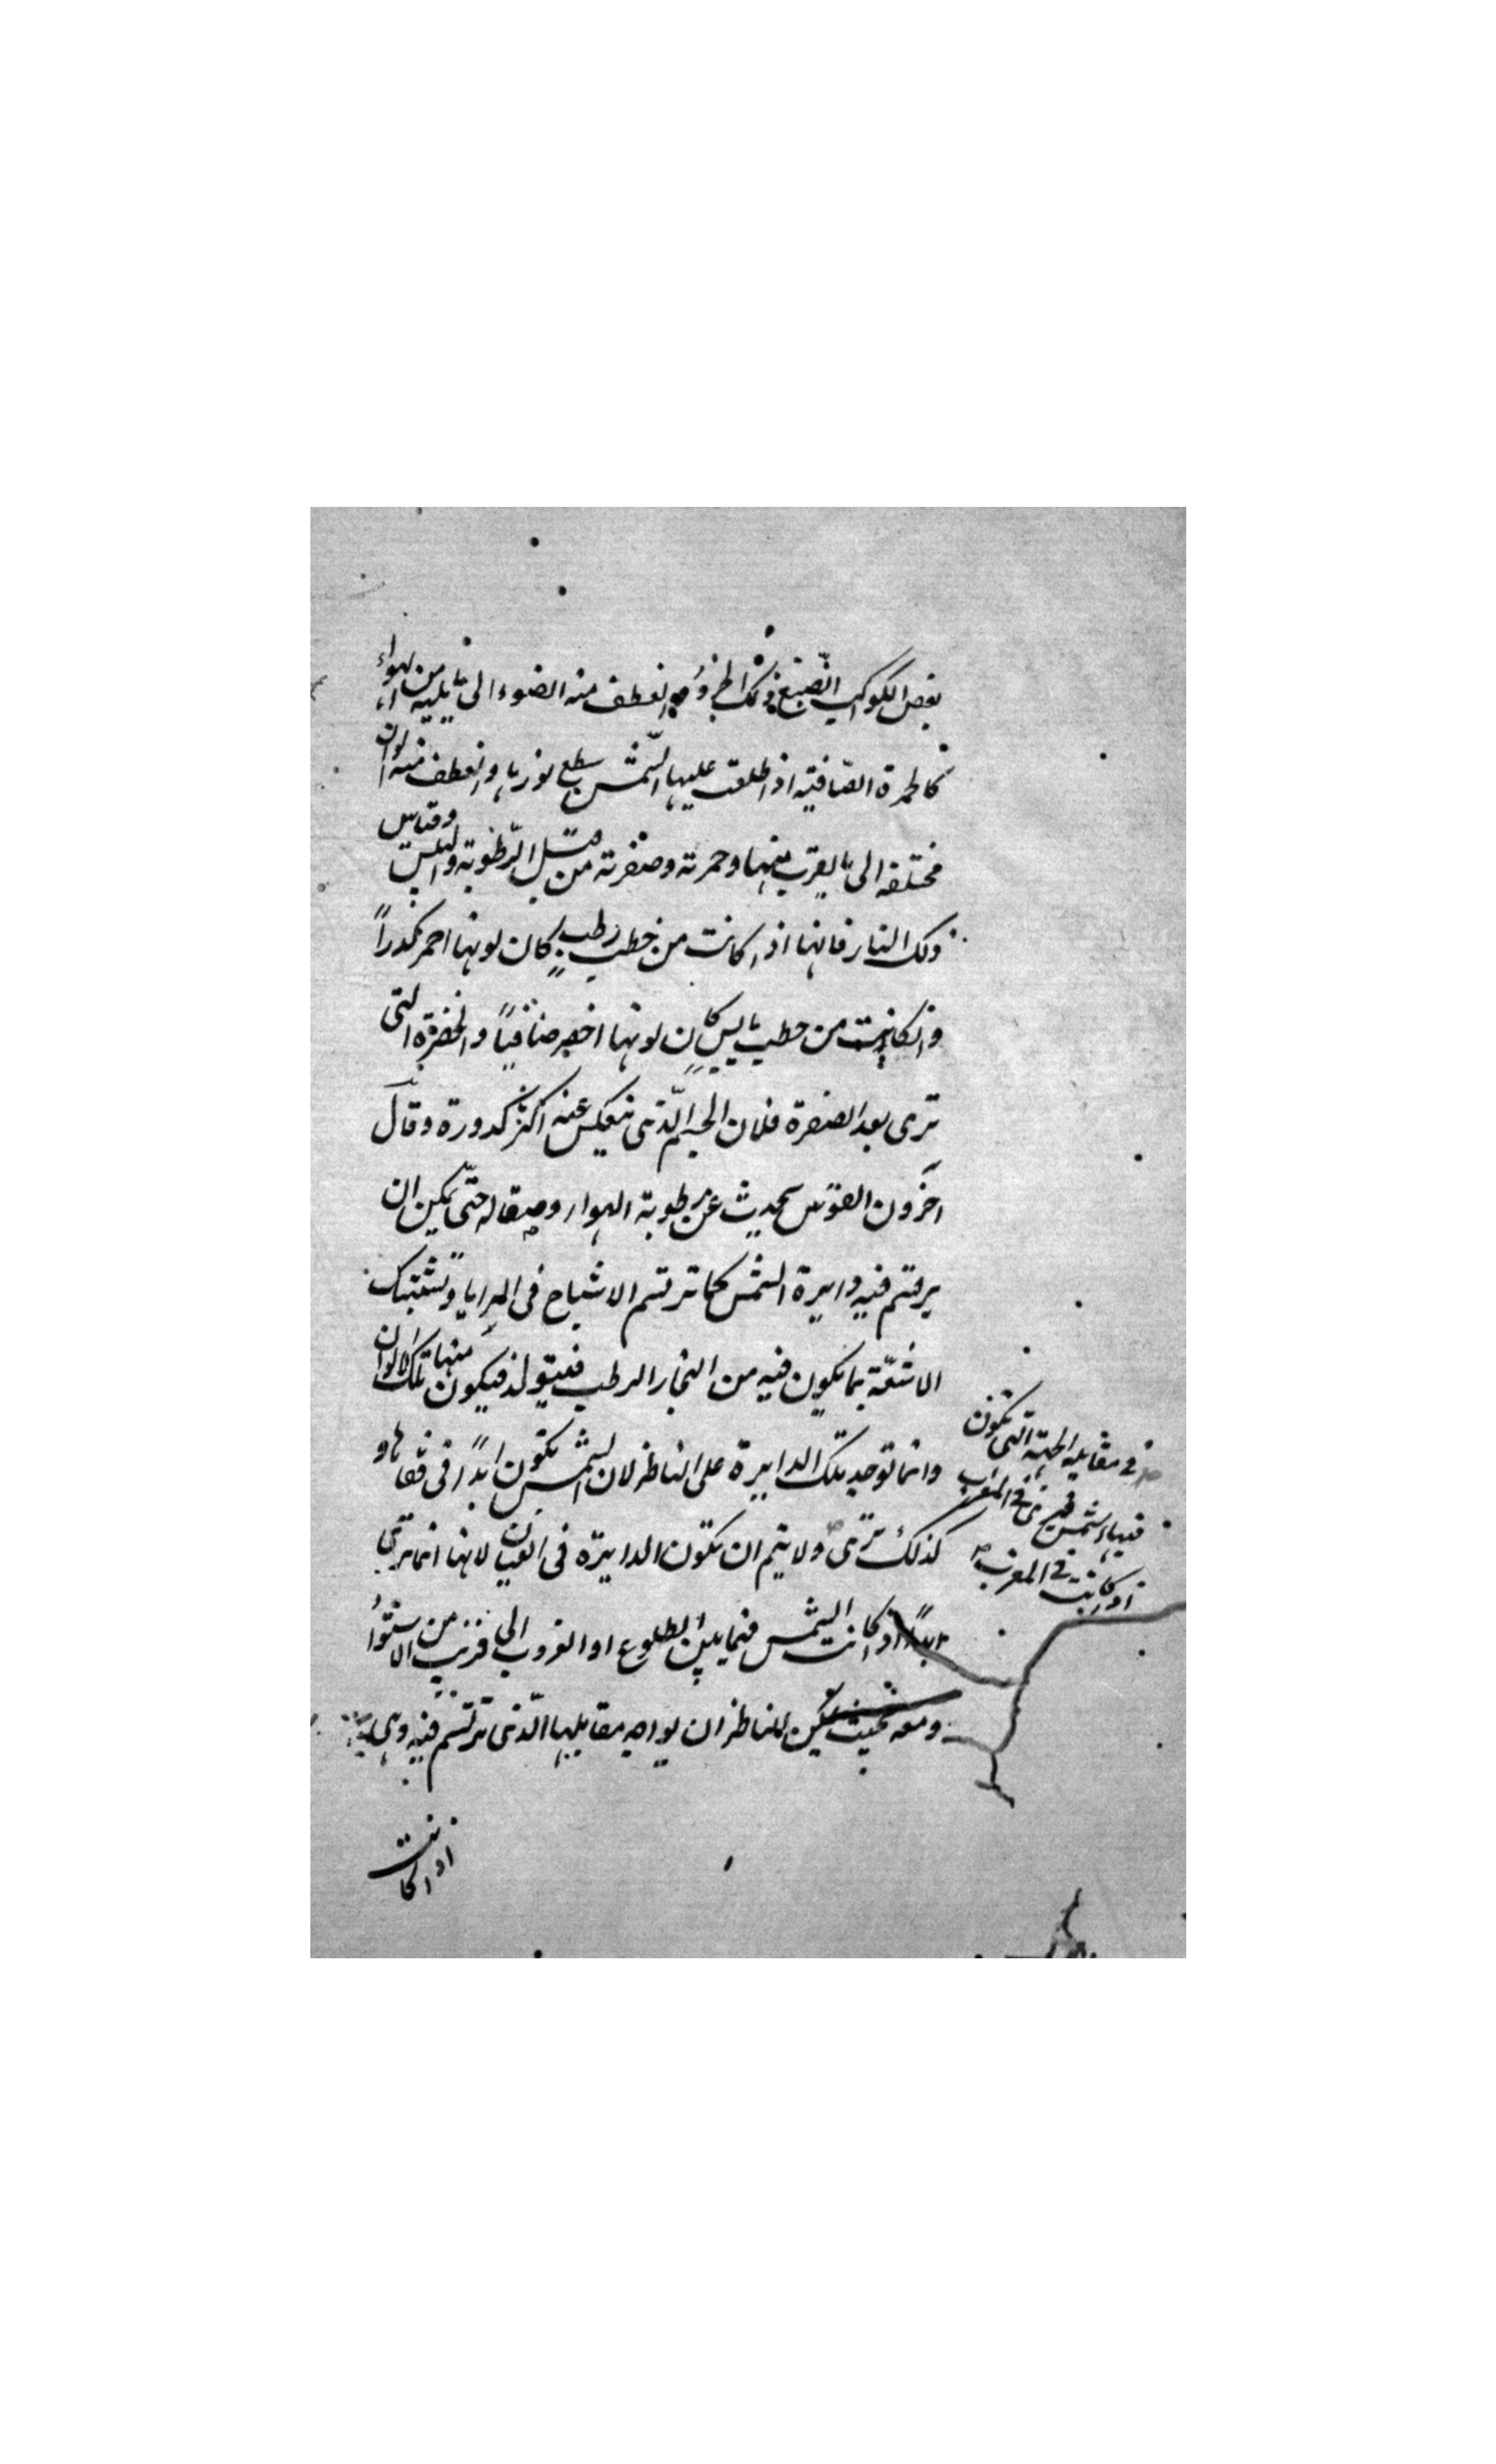 بعض الكواكب انصبغ ذلك الجزؤ وانعطف منه الضوء الى ما يليه من الهواء
كالجمرة الصافية اذا طلعت عليها الشمس سطع نورها وانعطف منه الوان
مختلفه الى ما يقرب منها وحمرته وصفرته من قبل الرطوبة واليبس وقياس
ذلك النار فانها اذا كانت من حطب رطب كان لونها احمر كدراً
وان كانت من حطب يابس كان لونها اخضر صافياً والخضرة التى
ترى بعد الصفرة فلان الجسم الذى ينعكس عنه اكثر كدورة وقال
اخرون القوس يحدث عن رطوبة الهواء وصقاله حتى يمكن ان
يرتسم فيه دايرة الشمس كما ترتسم الاشباح فى المرايا وتشتبك
الاشعة بما يكون فيه من البخار الرطب فيتولد فيكون منها تلك الالوان
وانما توجد تلك الدايرة على الناظر لان الشمس تكون ابداً فى قفاها و
كذلك ترى ولا يتم ان تكون الدايرة فى العيان لانها انما ترى
ابداً اذا كانت الشمس فيما بين الطلوع او الغروب الى قريب من الاستواء
ومعه بحيث يمكن للناظر ان يواجه مقابلها الذى ترتسم فيه وهى
اذا كانت
فى مقابله الجهة التى تكون
فيها الشمس فترى فى المغرب
اذا كانت فى